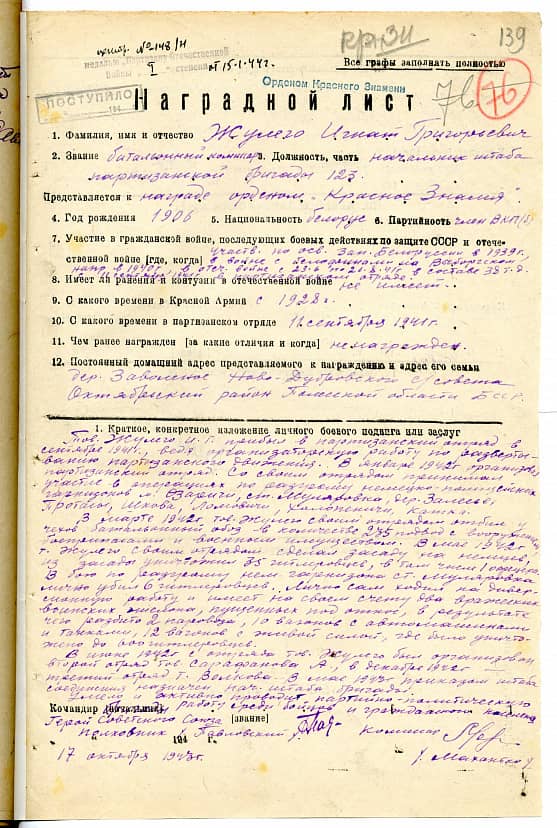 139
приказ № 148/н
медалью "Партизану Отечественной
Войны I степени"
от 15-I-44г.
Все графы заполнять полностью
ПОСТУПИЛО
194
Орденом Красного Знамени
76
76
Наградной лист
1. Фамилия, имя и отчество Жулего Игнат Григорьевич
2. Звание батальонный комиссар 3. Должность, часть начальник штаба
партизанской бригады 123.
Представляется к награде орденом "Красное Знамя"
4. Год рождения 1906 5. Национальность белорус 6. Партийность член ВКП(б)
7. Участие в гражданской войне, последующих боевых действиях по защите СССР и отече-
ственной войне [где, когда] участв. по осв. Зап. Белоруссии в 1939г.
в войне с белофиннами на Выборгском
напр. в 1940г. в отеч. войне с 23.6 по 26.8.41г. в составе 38 т.д.
8. Имеет ли ранения и контузии в отечественной войне не имеет
9. С какого времени в Красной Армии с 1928г.
10. С какого времени в партизанском отряде 11 сентября 1941г.
11. Чем ранее награжден [за какие отличия и когда] ненагражден.
12. Постоянный домашний адрес представляемого к награждению и адрес его семьи
дер. Заволжное Ново-Дубровский с/совета
Октябрьский район Полесской области БССР.
1. Краткое, конкретное изложение личного боевого подвига или заслуг
Тов. Жулего И.Г. прибыл в партизанский отряд в
сентябре 1941г. ведя организаторскую работу по разверты-
ванию партизанского движения. В январе 1942г. организовал
партизанский отряд. Со своим отрядом принимал
участие в операциях по разгрому немецко-полицейских
гарнизонов м. Озаричи, ст. Муляровка, дер. Залесье,
Протасы, Шкова, Ломовичи, Холопеничи, Катка.
В марте 1942г. тов. Жулего своим отрядом отбил у
чехов батальонный обоз в количестве 235 подвод с вооружением,
боеприпасами и военным имуществом. В мае 1942г.
т. Жулего своим отрядом сделал засаду на немцев,
из засады уничтожил 35 гитлеровцев, в том числе 1 офицера.
В бою по разгрому нем. гарнизона ст. Муляровка
лично убил 6 гитлеровцев. Лично сам ходил на дивер-
сионную работу и имеет на своем счету два вражеских
воинских эшелона, пущенных под откос, в результате
чего разбито 2 паровоза, 10 вагонов с автомашинами
и танками, 12 вагонов с живой силой, где было уничто-
жено до гитлеровцев.
В июне 1942г. отряда тов. Жулего был организован
второй отряд тов. Сарафанова А., в декабре 1942г.
третий отряд т. Великова. В мае 1943г. приказом штаба
соединения назначен нач. штаба бригады.
Умело и активно проводит партийно-политическую
работу среди бойцов и гражданского населения
Командир (начальник)
Герой Советского Союза [звание]
Полковник Павловский
194 г.
Комиссар
17 октября 1943г.